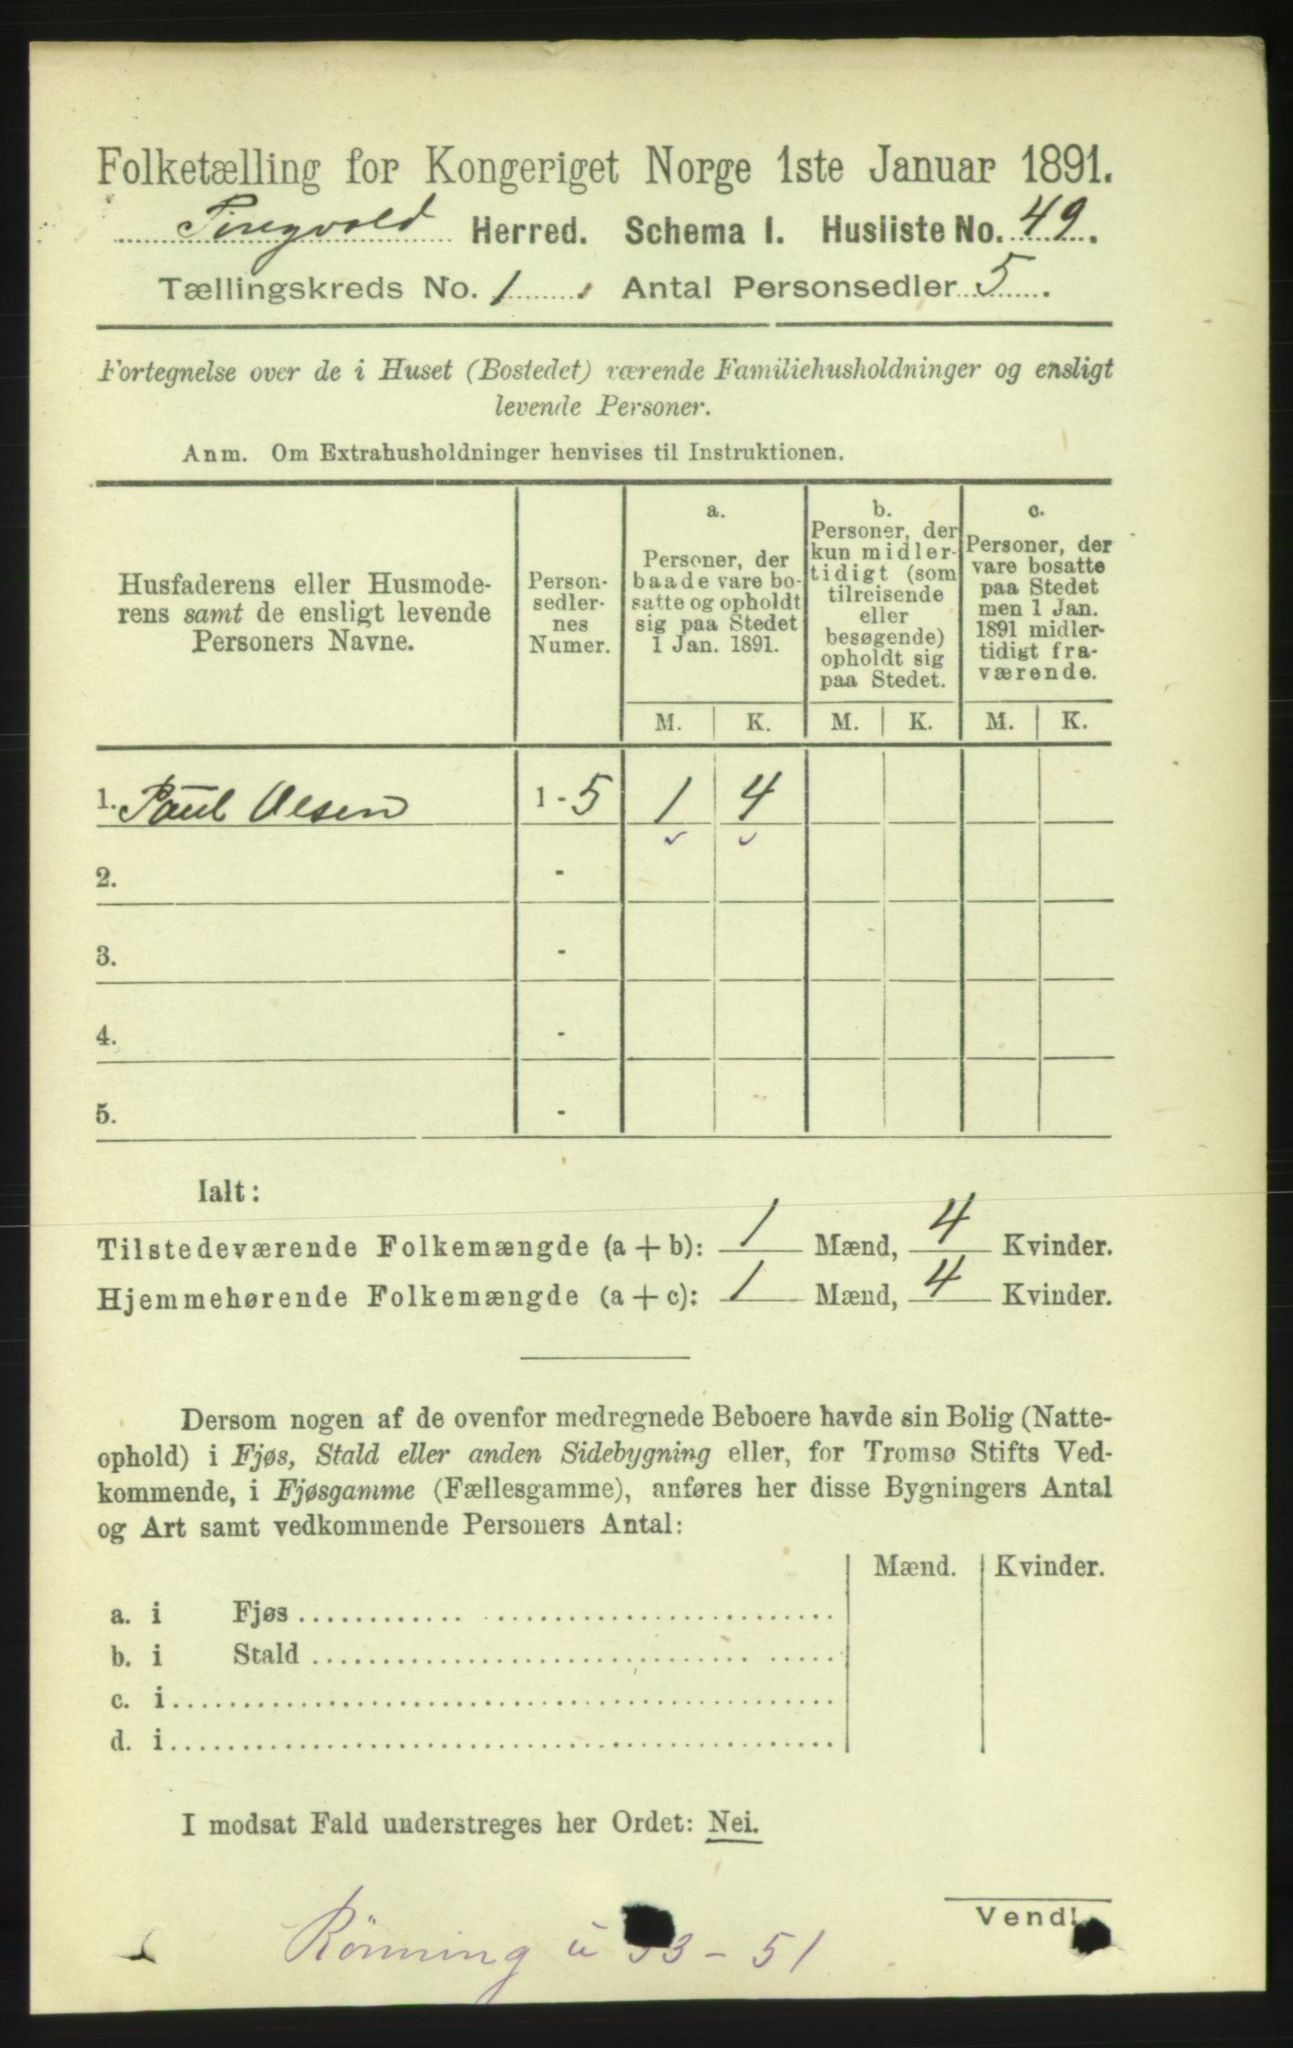 Folketælling for Kongeriget Norge 1ste Januar 1891.
Tingvold Herred. Schema I. Husliste No. 49.
Tællingskreds No. 1. Antal Personsedler 5.
Fortegnelse over de i Huset (Bostedet) værende Familiehusholdninger og ensligt
levende Personer.
Anm. Om Extrahusholdninger henvises til Instruktionen.
Husfaderens eller Husmode-
rens samt de ensligt levende
Personers Navne.
Person-
sedler-
nes
Numer.
a.
Personer, der
baade vare bo-
satte og opholdt
sig paa Stedet
1 Jan. 1891.
b.
Personer, der
kun midler-
tidigt (som
tilreisende
eller
besøgende)
opholdt sig
paa Stedet.
c.
Personer, der
vare bosatte
paa Stedet
men 1 Jan.
1891 midler-
tidigt fra-
værende.
M. K. M. K. M. K.
1. Paul Olsen 1 - 5 1 4
2. -
3. -
4. -
5. -
Ialt:
Tilstedeværende Folkemængde (a + b): 1 Mænd, 4 Kvinder.
Hjemmehørende Folkemængde (a + c): 1 Mænd, 4 Kvinder.
Dersom nogen af de ovenfor medregnede Beboere havde sin Bolig (Natte-
ophold) i Fjøs, Stald eller anden Sidebygning eller, for Tromsø Stifts Ved-
kommende, i Fjøsgamme (Fællesgamme), anføres her disse Bygningers Antal
og Art samt vedkommende Personers Antal:
Mænd. Kvinder.
a. i Fjøs
b. i Stald
c. i
d. i
I modsat Fald understreges her Ordet: Nei.
Vend!
Rönning u - 51